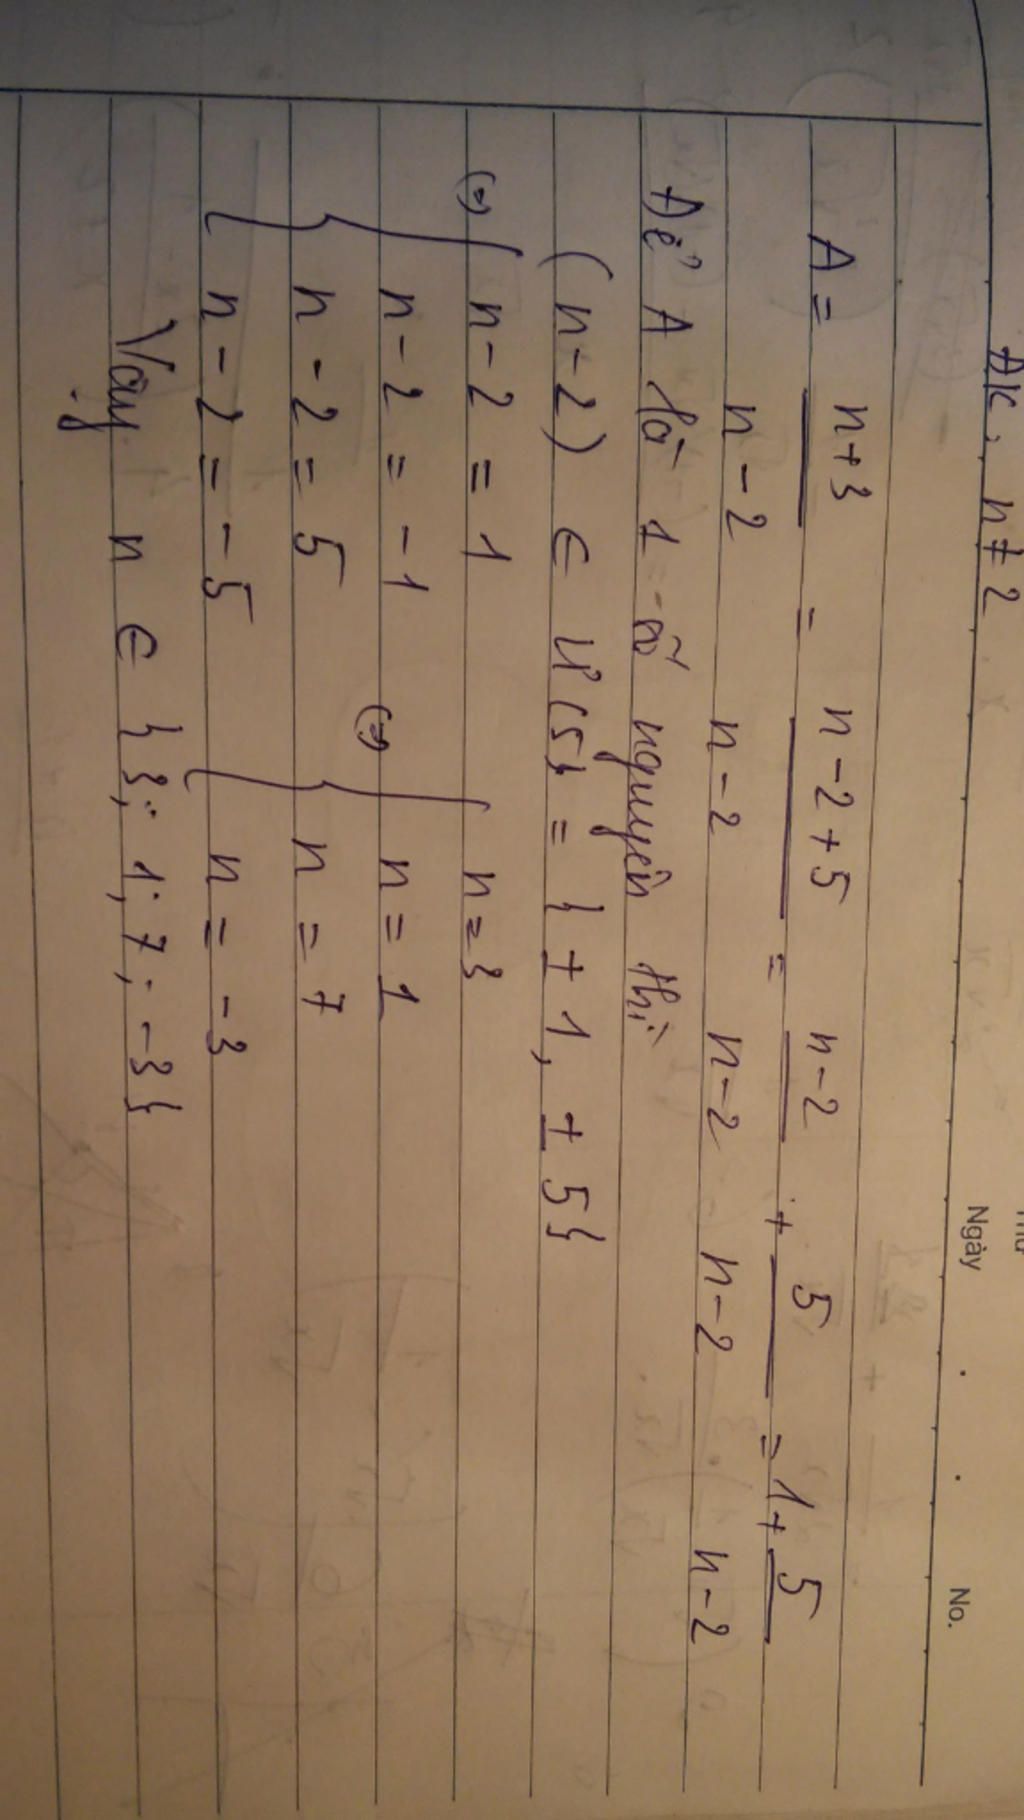 Thứ
Ngày . . No.
Đk, n ≠ 2
A = n+3 / n-2 = n-2+5 / n-2 = n-2 / n-2 + 5 / n-2 = 1 + 5 / n-2
Để A là 1 số nguyên thì
(n-2) ∈ Ư(5) = {±1, ±5}
(=) { n-2 = 1 (=) { n=3
n-2 = -1 n=1
n-2 = 5 n=7
n-2 = -5 n=-3
Vậy n ∈ {3; 1; 7; -3}